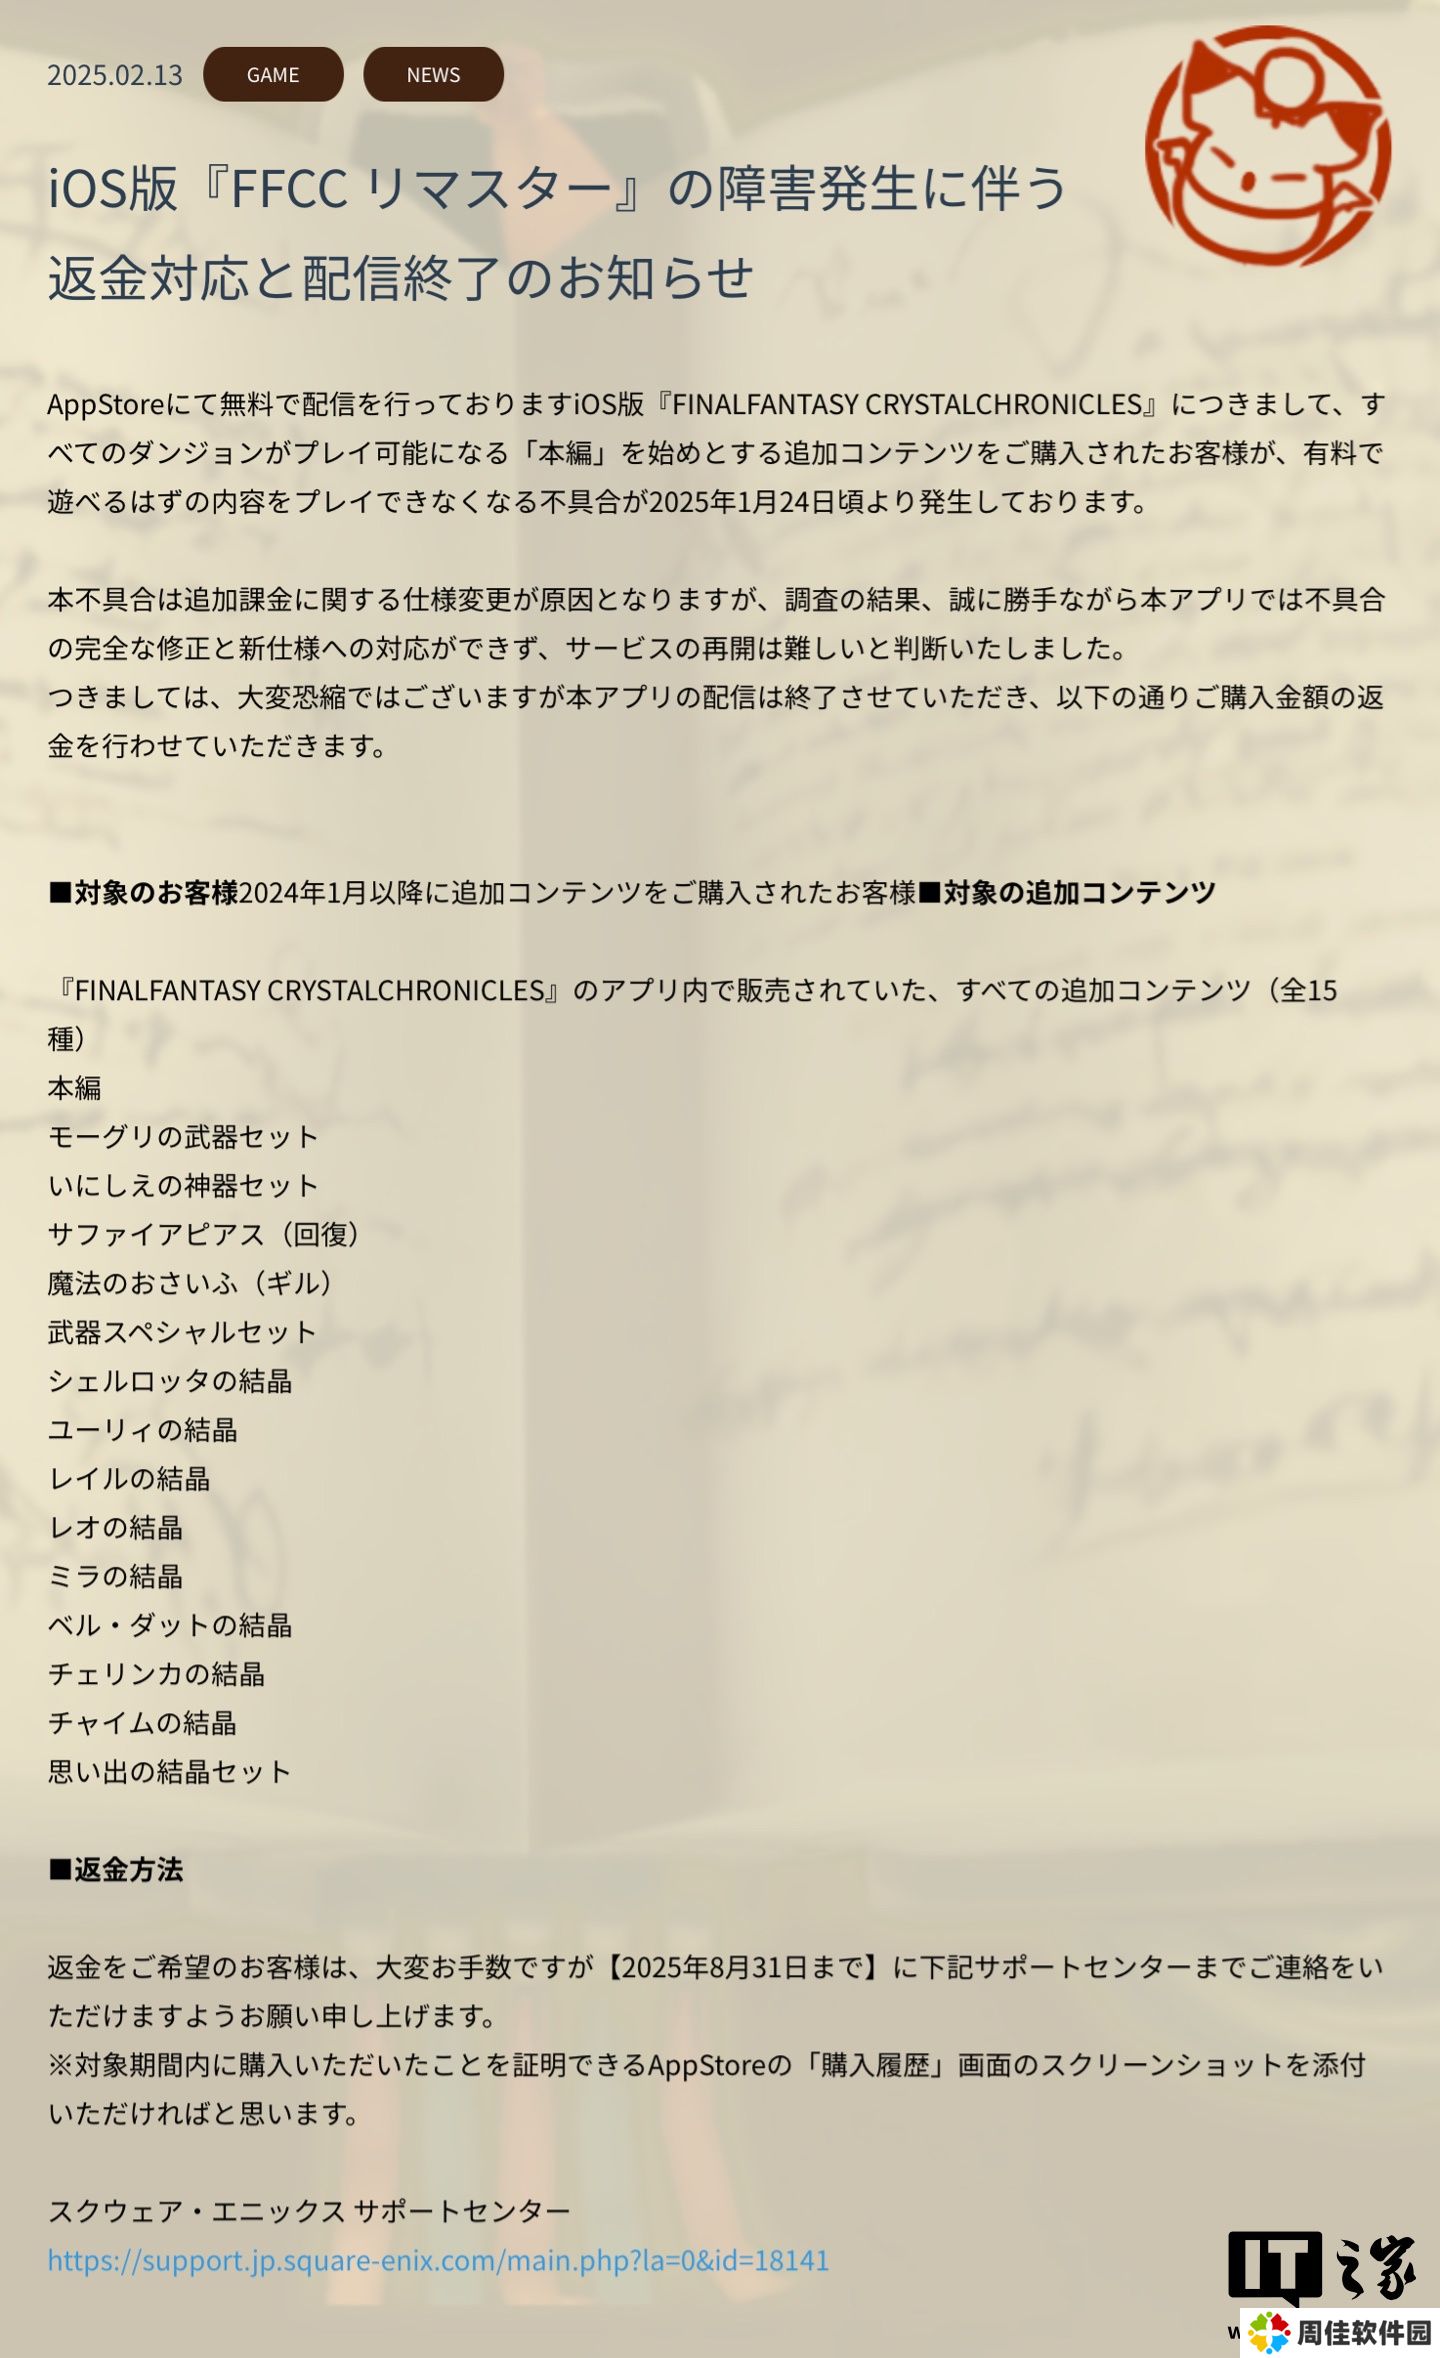 2025.02.13 GAME NEWS
iOS版『FFCC リマスター』の障害発生に伴う
返金対応と配信終了のお知らせ
AppStoreにて無料で配信を行っておりますiOS版『FINALFANTASY CRYSTALCHRONICLES』につきまして、す
べてのダンジョンがプレイ可能になる「本編」を始めとする追加コンテンツをご購入されたお客様が、有料で
遊べるはずの内容をプレイできなくなる不具合が2025年1月24日頃より発生しております。
本不具合は追加課金に関する仕様変更が原因となりますが、調査の結果、誠に勝手ながら本アプリでは不具合
の完全な修正と新仕様への対応ができず、サービスの再開は難しいと判断いたしました。
つきましては、大変恐縮ではございますが本アプリの配信は終了させていただき、以下の通りご購入金額の返
金を行わせていただきます。
■対象のお客様2024年1月以降に追加コンテンツをご購入されたお客様■対象の追加コンテンツ
『FINALFANTASY CRYSTALCHRONICLES』のアプリ内で販売されていた、すべての追加コンテンツ（全15
種）
本編
モーグリの武器セット
いにしえの神器セット
サファイアピアス（回復）
魔法のおさいふ（ギル）
武器スペシャルセット
シェルロッタの結晶
ユーリィの結晶
レイルの結晶
レオの結晶
ミラの結晶
ベル・ダットの結晶
チェリンカの結晶
チャイムの結晶
思い出の結晶セット
■返金方法
返金をご希望のお客様は、大変お手数ですが【2025年8月31日まで】に下記サポートセンターまでご連絡をい
ただけますようお願い申し上げます。
※対象期間内に購入いただいたことを証明できるAppStoreの「購入履歴」画面のスクリーンショットを添付
いただければと思います。
スクウェア・エニックス サポートセンター
https://support.jp.square-enix.com/main.php?la=0&id=18141
IT之家
周佳软件园